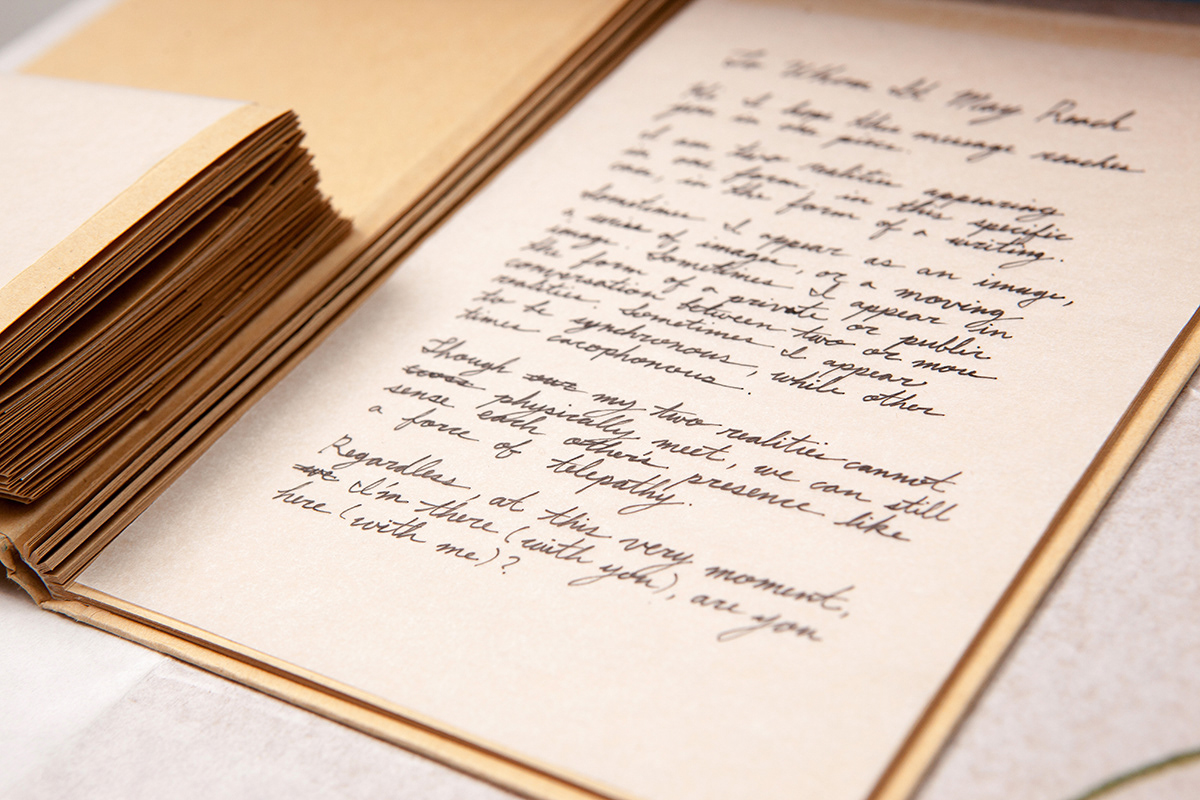 To Whom It May Reach
Hi I hope this message reaches
you in one piece.
I am two realities appearing
in one form, in this specific
one, in the form of a writing.
Sometimes I appear as an image,
a series of images, or a moving
image. Sometimes I appear in
the form of a private or public
conversation between two or more
realities. Sometimes I appear
to be synchronous, while other
times cacophonous.
Though my two realities cannot
physically meet, we can still
sense each other's presence like
a force of telepathy.
Regardless, at this very moment,
I'm there (with you), are you
here (with me)?